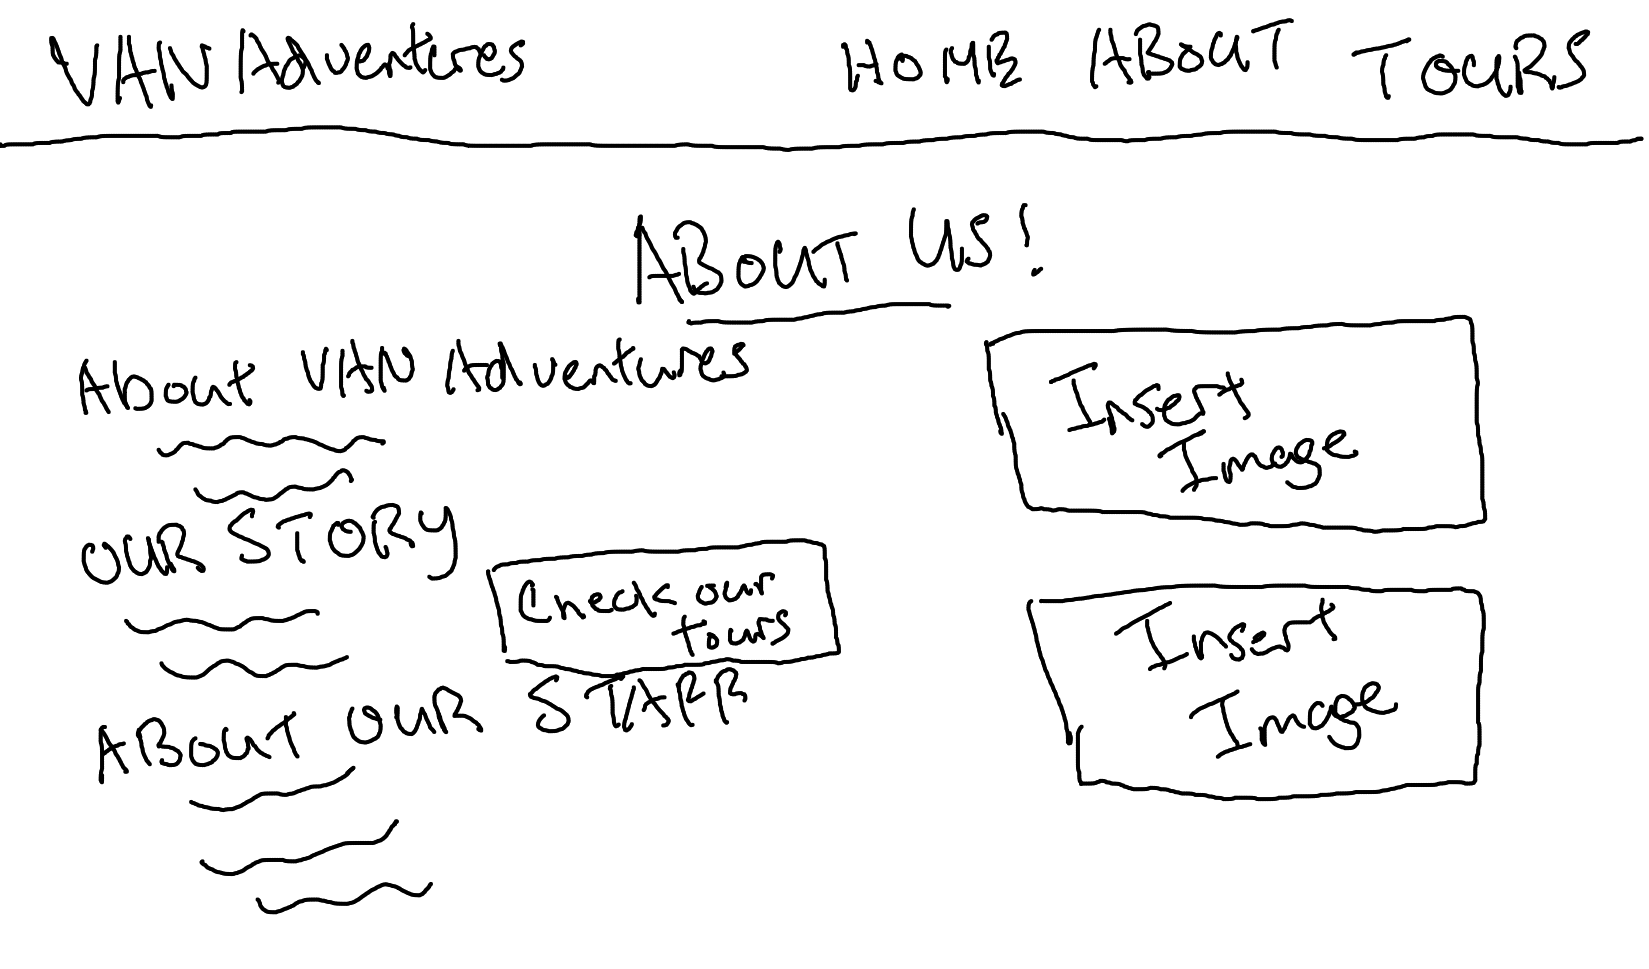 VAN Adventures HOME ABOUT TOURS
ABOUT US!
About VAN Adventures
OUR STORY
Check our
tours
ABOUT OUR STAFF
Insert
Image
Insert
Image